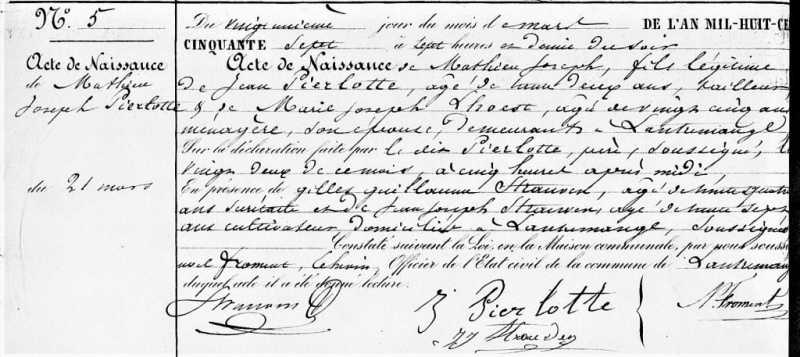 N° 5
Acte de Naissance
de Mathieu
Joseph Pierlotte
du 21 mars
Du vingt unième jour du mois de mars DE L'AN MIL-HUIT-CE
CINQUANTE sept à sept heures et demie du soir
Acte de Naissance de Mathieu Joseph, fils légitime
de Jean Pierlotte, agé de trente deux ans, tailleur
& de Marie Joseph Lhoest, agé de vingt cinq ans
ménagère, son épouse, demeurants à Lantremange
Sur la déclaration faite par le dit Pierlotte, père, soussigné, le
vingt deux de ce mois, à cinq heures après midi
En présence de gilles guillaume Strauven, agé de trente quatre
ans et de Jean Joseph Strauven, agé de trente sept
ans cultivateur domicilié à Lantremange, soussignés
Constaté suivant la Loi, en la Maison communale, par nous
noel Froment, Echevin, Officier de l'Etat civil de la commune de Lantremang
duquel acte il a été donné lecture.
J Pierlotte
N. Froment